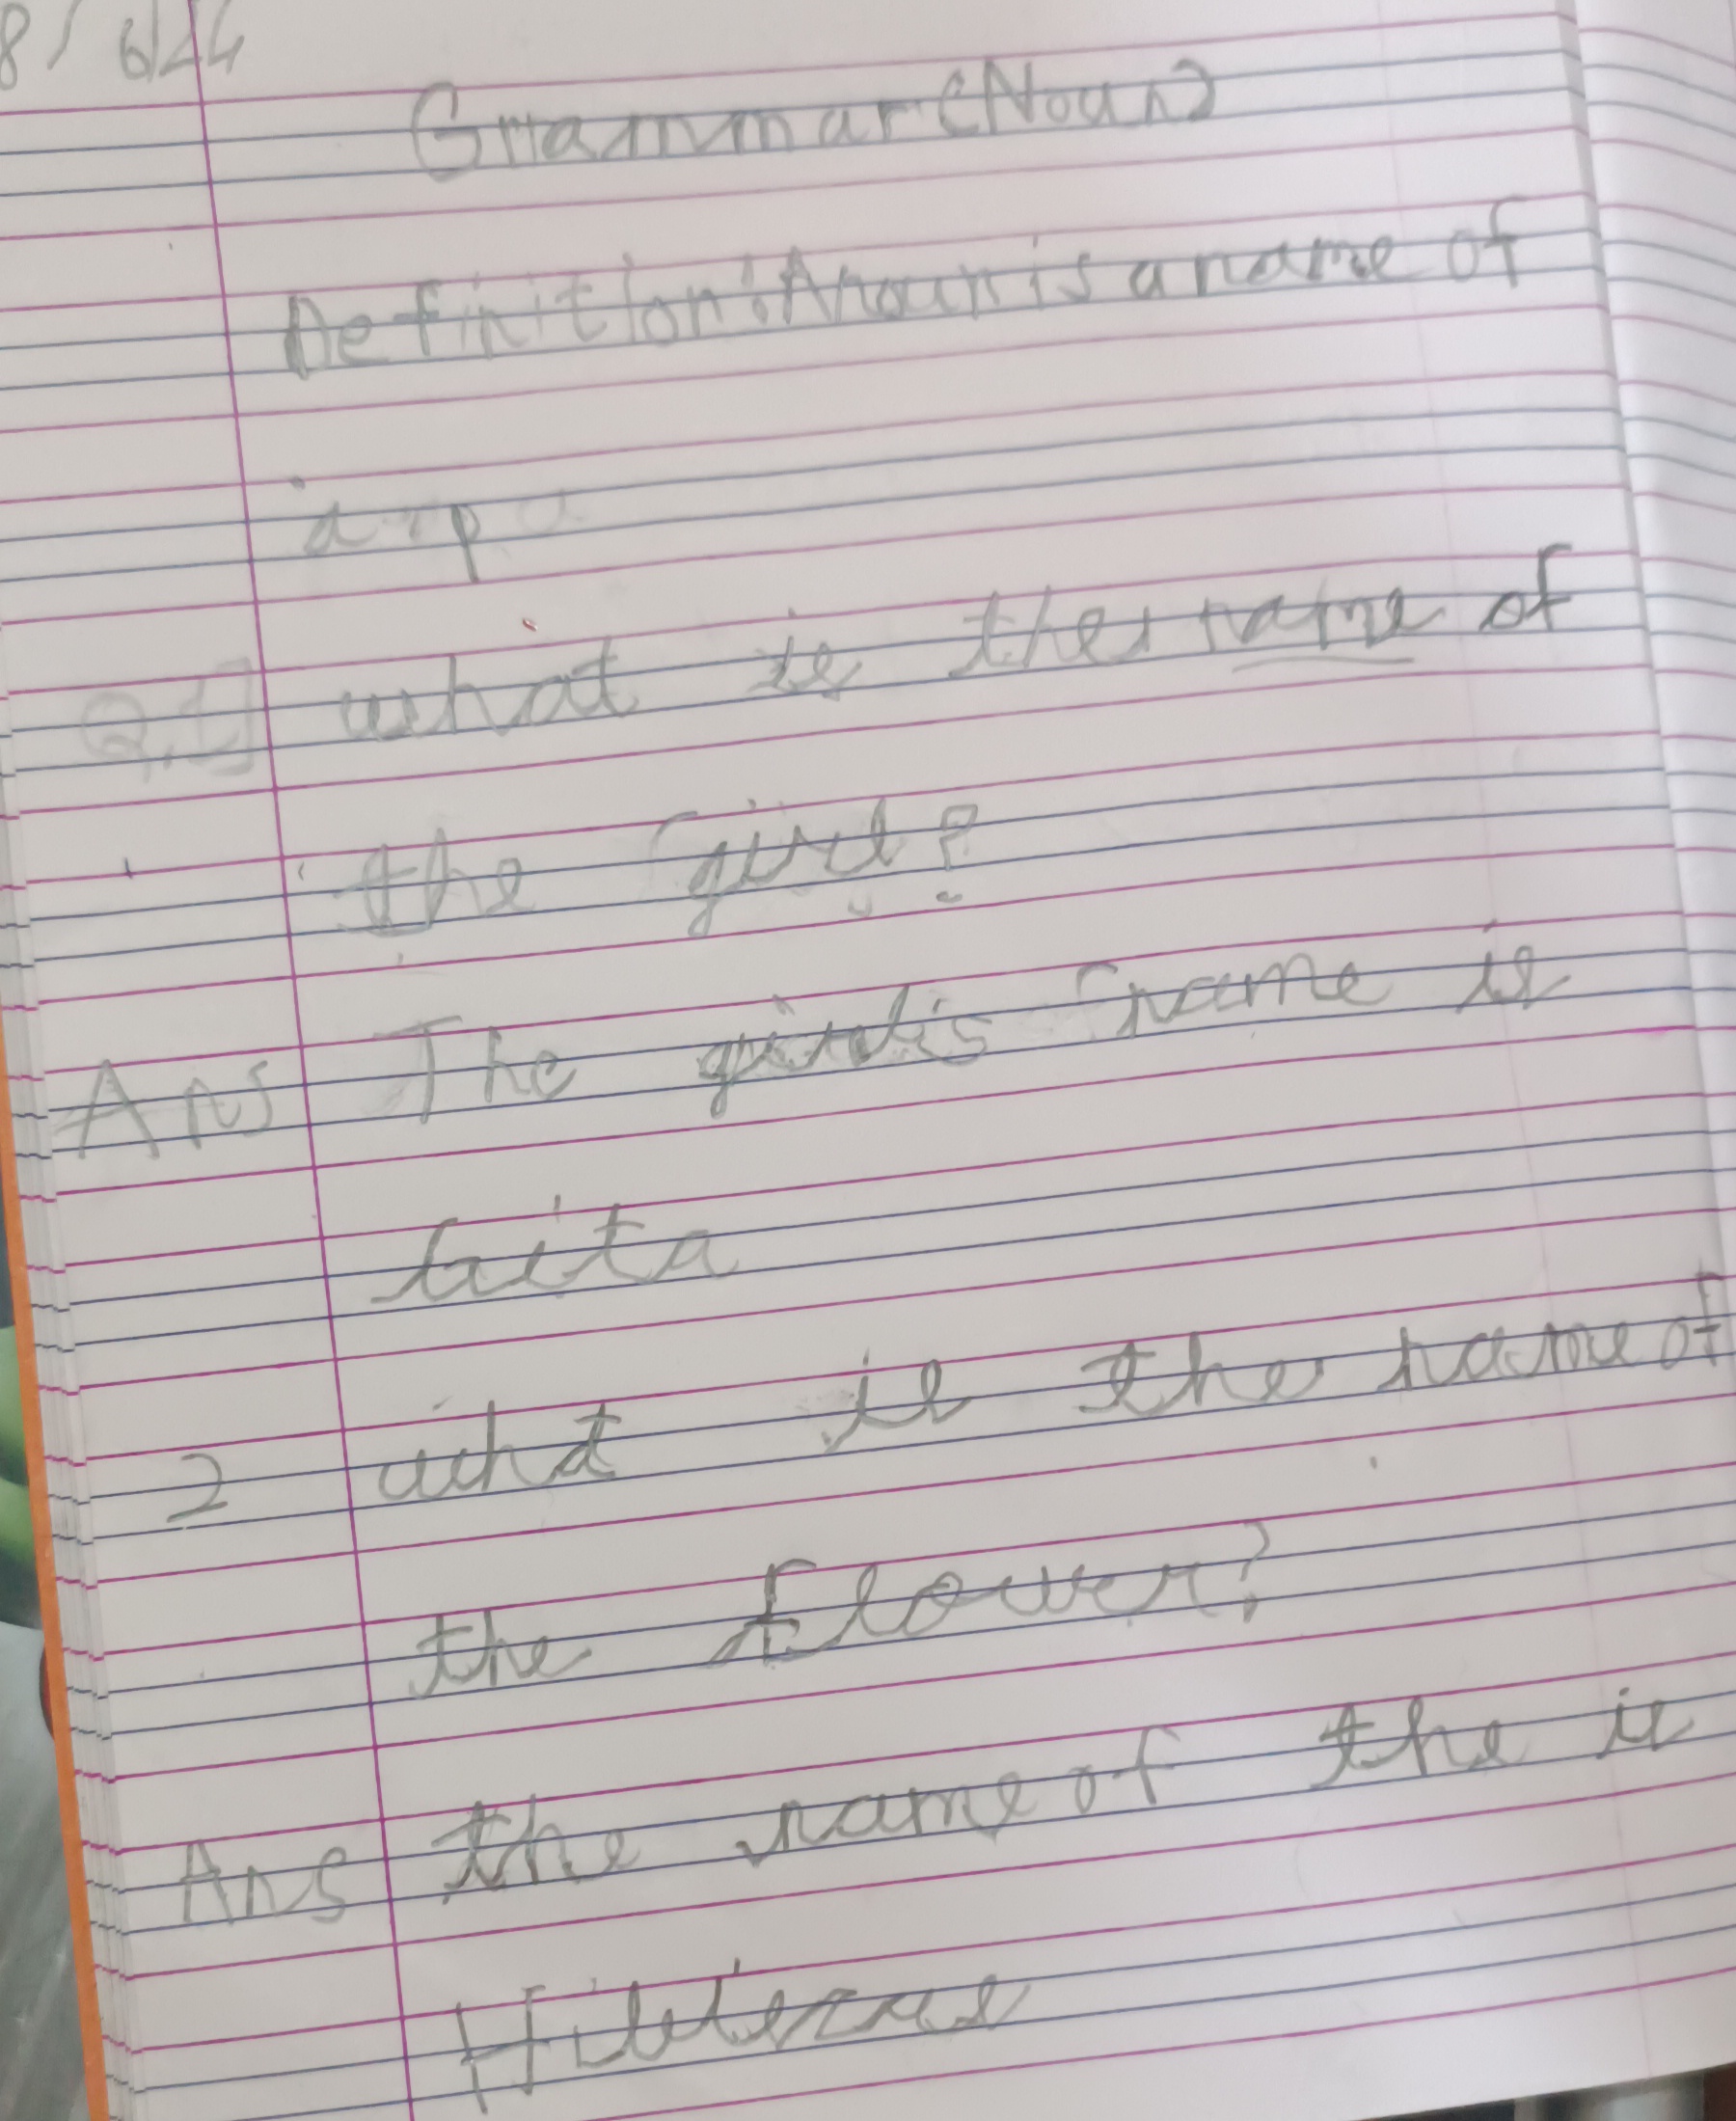 8/6/24
Grammar (Noun)
Definition: A noun is a name of
a p
Q.1] what is the name of
the girl?
Ans The girl's name is
Gita
2 what is the name of
the flower?
Ans the name of the is